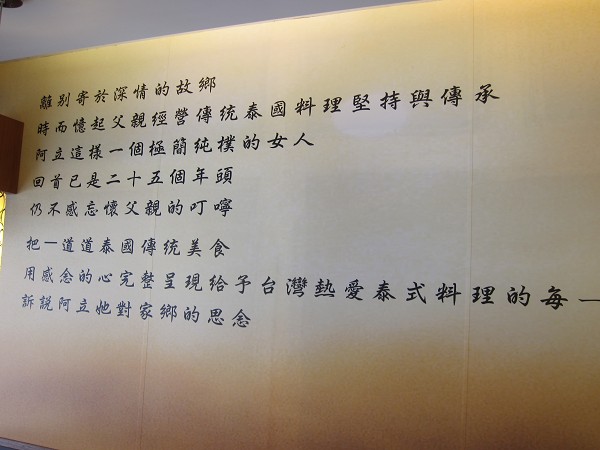 離別寄於深情的故鄉
時而憶起父親經營傳統泰國料理堅持與傳承
阿立這樣一個極簡純樸的女人
回首已是二十五個年頭
仍不感忘懷父親的叮嚀
把一道道泰國傳統美食
用感念的心完整呈現給予台灣熱愛泰式料理的每一
訴說阿立她對家鄉的思念